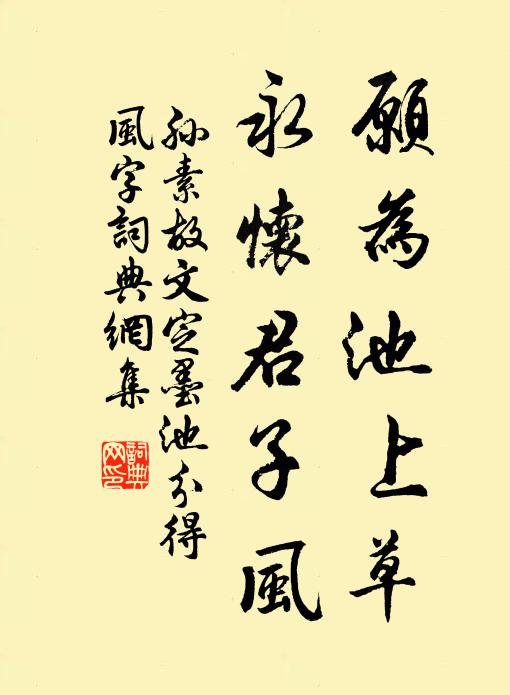 願為池上草
永懷君子風
孫素故文定墨池分得
風字詞典網集
詞典
网印